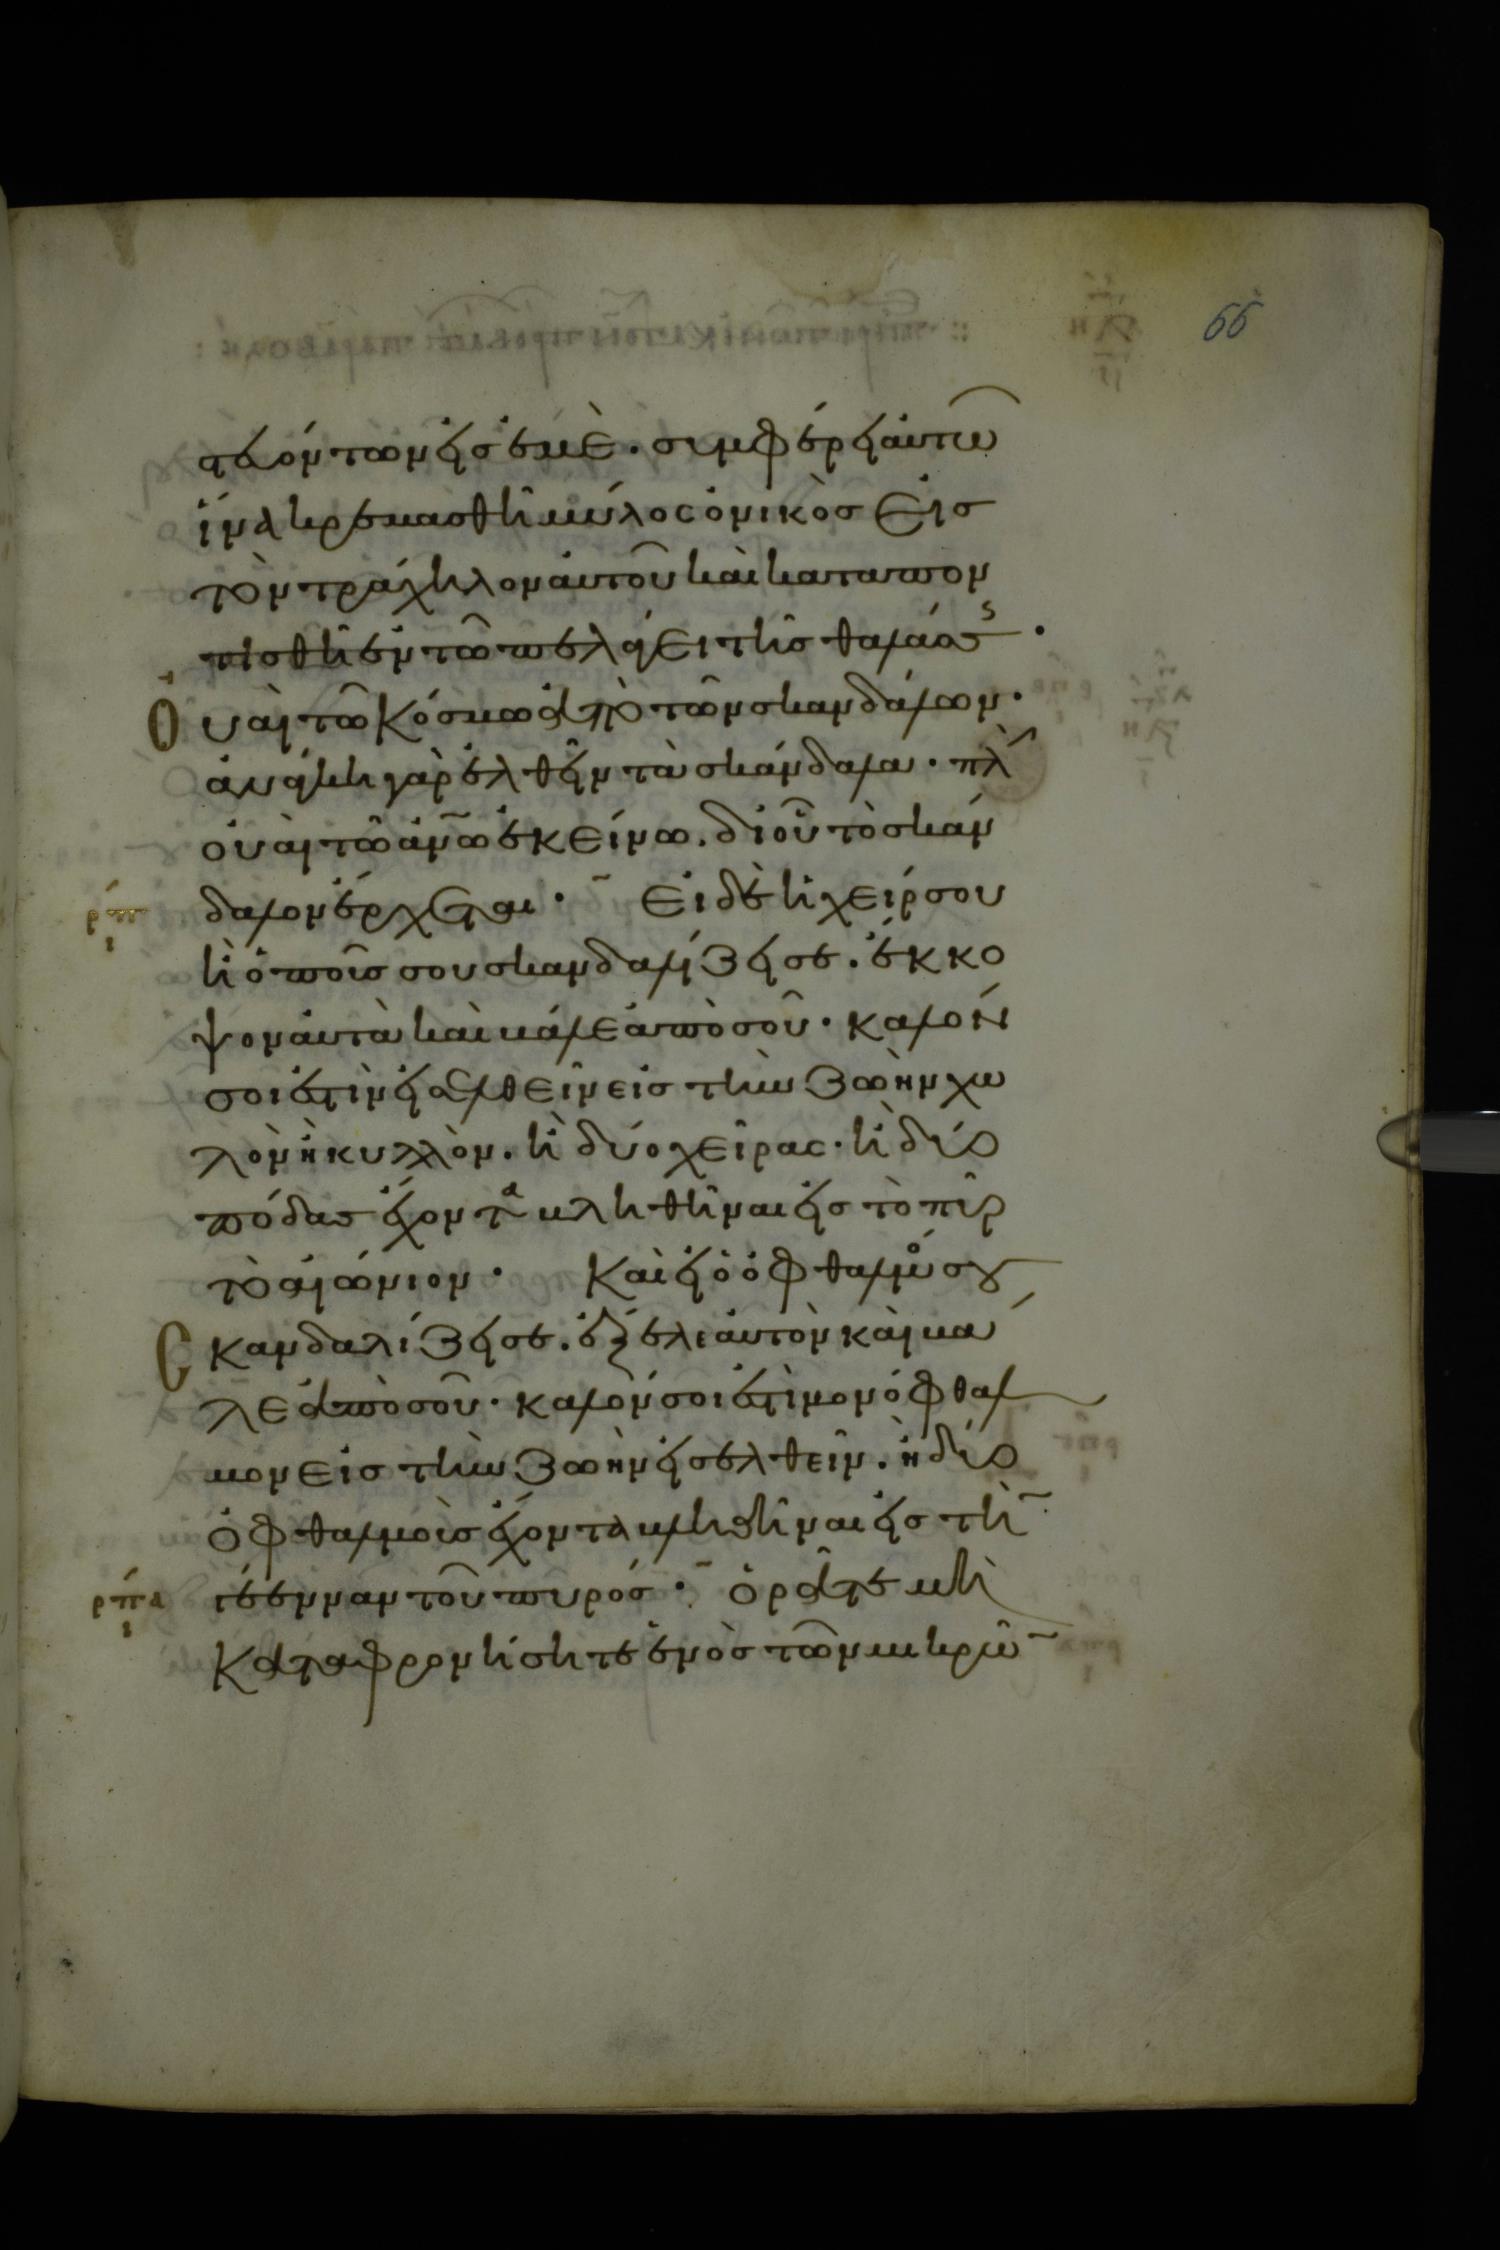 66
στευόντων εἰς ἐμὲ· συμφέρει αὐτῶ
ἵνα κρεμασθῆ μύλος ὀνικὸσ εἰσ
τὸν τράχηλον αὐτοῦ καὶ καταπον
τισθῆ ἐν τῶ πελάγει τῆσ θαλάσς·
Ουαὶ τῶ κόσμω ἀπὸ τῶν σκανδάλων·
ἀνάγκη γὰρ ἐλθεῖν τὰ σκάνδαλα· πλὴ
οὐαὶ τῶ ἀνω ἐκείνω. δι οὗ τὸ σκάν
ρπ ι δαλον ἔρχεται· Εἰ δὲ ἡ χείρ σου
ἢ ὁ ποῦσ σου σκανδαλίζει σε. ἔκκο
ψον αὐτὰ καὶ βάλε ἀπὸ σοῦ· καλόν
σοι ἐστὶν εἰσελθεῖν εἰσ τὴν ζωὴν χω
λὸν ἢ κυλλὸν. ἢ δύο χεῖρας· ἢ δύο
πόδασ ἔχοντα βληθῆναι εἰσ τὸ πῦρ
τὸ αἰώνιον· Καὶ εἰ ὁ ὀφθαλμόσ σου
Cκανδαλίζει σε. ἔξελε αὐτὸν καὶ βά
λε ἀπὸ σοῦ· καλόν σοι ἐστὶ μονόφθαλ
μον εἰσ τὴν ζωὴν εἰσελθεῖν. ἢ δύο
ὀφθαλμοὺσ ἔχοντα βληθῆναι εἰσ τὴ
ρπα ι γέενναν τοῦ πυρόσ· ὁρᾶτε μὴ
Καταφρονήσητε ἑνὸσ τῶν μικρῶ